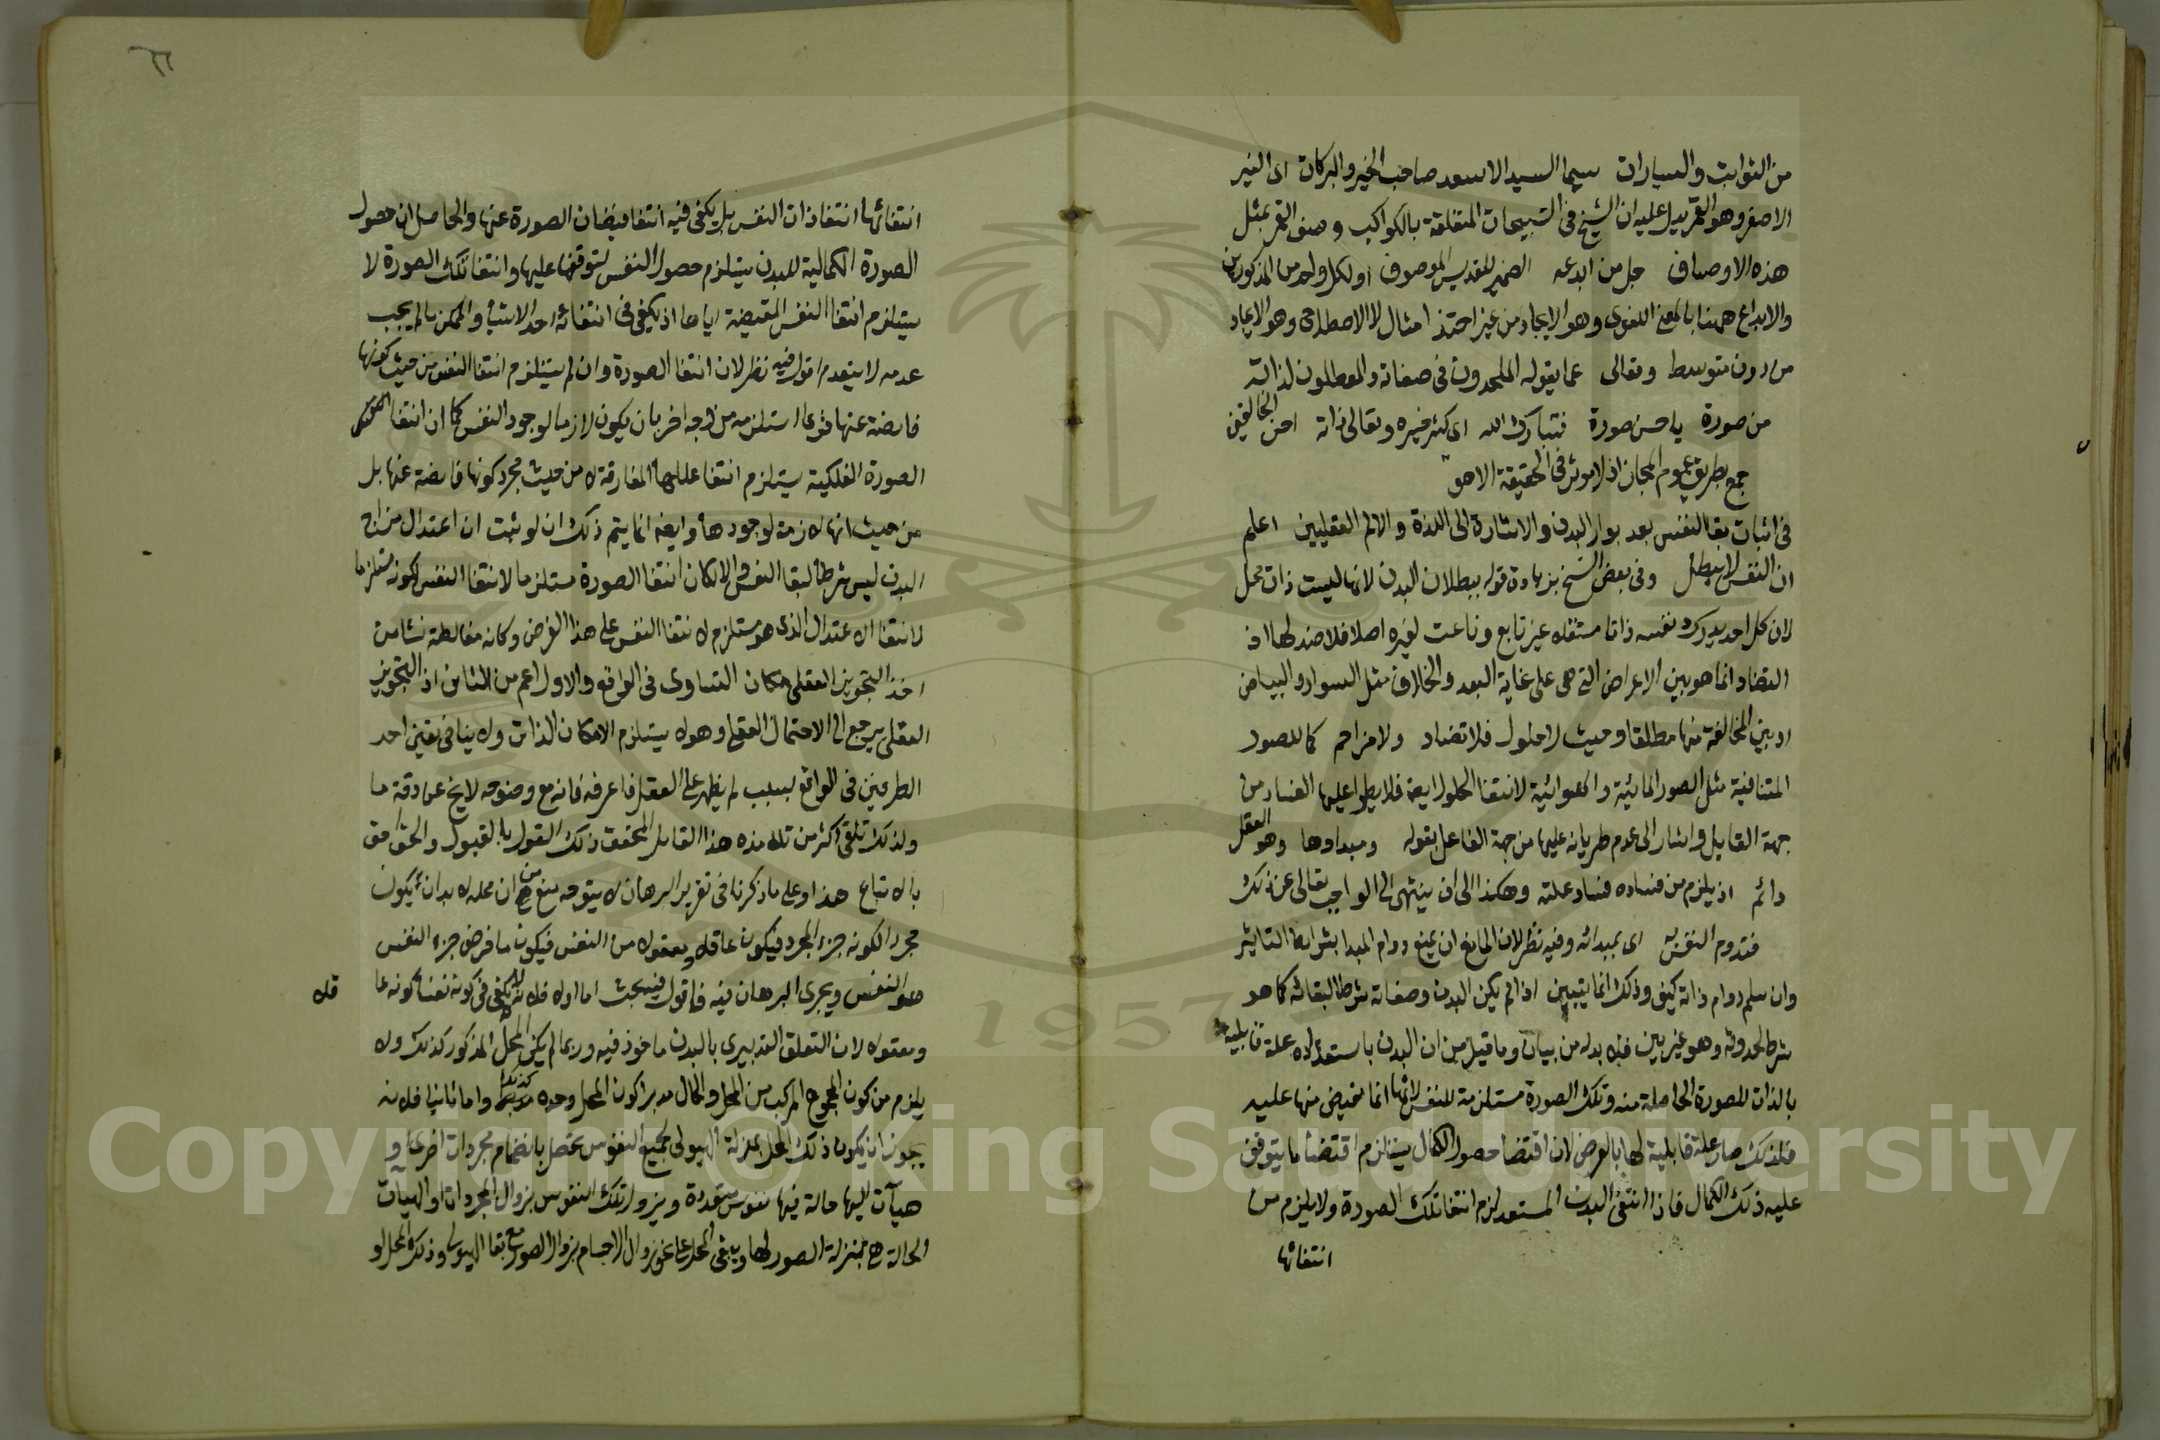 من الثوابت والسيارات سيما السيد الاسعد صاحب الخير والبركات اى النير
الاصغر وهو القمر يدل عليه ان الشيخ فى التسبيحات المتعلقة بالكواكب وصف القمر بمثل
هذه الاوصاف جل من ابدعه الضمير للقديس الموصوف او لكل واحد من المذكورين
والابداع ههنا بالمعنى اللغوى وهو الايجاد من غير احتذا امثال لا الاصطلاحى وهو الايجاد
من دون متوسط وتعالى عما يقوله الملحدون فى صفاته والمعطلون لذاته
من صورة يا حسن صورة فتبارك الله اى كثر خيره وتعالى ذاته احسن الخالقين
جمع بطريق عموم المجاز اذ لا موثر فى الحقيقة الا هو
فى اثبات بقا النفس بعد بوار البدن والاشارة الى اللذة والالم العقليين اعلم
ان النفس لا يبطل وفى بعض النسخ بزيادة قوله ببطلان البدن لانها ليست ذات محل
لان كل احد يدرك نفسه ذاتا مستقلة غير تابع وناعت لغيره اصلا فلا ضد لها اذ
التضاد انما هو بين الاعراض التى هى على غاية البعد والخلاف مثل السواد والبياض
او بين المخالفة منها مطلقا وحيث لا حلول فلا تضاد ولا مزاحم كما للصور
المتنافية مثل الصور المائية والهوائية لانتفا الحلول ايضا فلا يطرا عليها الفساد من
جهة القابل واشار الى عدم طريانه عليها من جهة الفاعل بقوله ومبداوها وهو العقل
دائم اذ يلزم من فساده فساد علته وهكذا الى ان ينتهى الى الواجب تعالى عن ذلك
فتدوم النفس به اى بمبدائه وفيه نظر لان المانع ان يمنع دوام المبدا بشرايط التاثير
وان سلم دوام ذاته كيف وذلك انما يتبين اذا لم يكن البدن وصفاته شرطا لبقائه كما هو
شرط لحدوثه وهو غير بين فلا بد له من بيان وما قيل من ان البدن باستعداده علة قابلية
بالذات للصورة الحاصلة منه وتلك الصورة مستلزمة للنفس لانها انما تفيض منها عليه
فلذلك صار علة قابلية لها بالعرض لان اقتضا حصول الكمال يستلزم اقتضا ما يتوقف
عليه ذلك الكمال فاذا انتفى البدن المستعد لزم انتفا تلك الصورة ولا يلزم من
انتفائها
انتفائها انتفا ذات النفس بل يكفى فيه انتفا فيضان الصورة عنها والحاصل ان حصول
الصورة الكمالية للبدن يستلزم حصول النفس لتوقفها عليها وانتفا تلك الصورة لا
يستلزم انتفا النفس المقتضية اياها اذ يكفى فى انتفائه احد الاشيا والممكن ما لم يجب
عدمه لا ينعدم اقول فيه نظر لان انتفا الصورة وان لم يستلزم انتفا النفس من حيث كونها
فايضة عنها فقد استلزمه من وجه اخر بان يكون لازما لوجود النفس كما ان انتفا
الصورة الفلكية يستلزم انتفا عللها المفارقة لا من حيث مجرد كونها فايضة عنها بل
من حيث انها لازمة لوجودها وايضا انما يتم ذلك ان لو ثبت ان اعتدال مزاج
البدن ليس شرطا لبقا النفس والا لكان انتفا الصورة مستلزما لانتفا النفس لكونه مستلزما
لانتفا الاعتدال الذى هو مستلزم لانتفا النفس على هذا الفرض وكانه مغالطة نشا من
اخذ التجويز العقلى مكان التساوى فى الواقع والاول اعم من الثانى اذ التجويز
العقلى يرجع الى الاحتمال العقلى وهو لا يستلزم الامكان الذاتى ولا ينافى تعين احد
الطرفين فى الواقع لسبب لم يظهر على العقل فاعرفه فانه مع وضوحه لا يخ عن دقة ما
ولذلك تلقى اكثر من تلامذه هذا القايل المحقق ذلك القول بالقبول والحق احق
بالاتباع هذا وعلى ما ذكرنا فى تقرير البرهان لا يتوجه منع ان محله لا بد ان يكون
مجردا لكونه جزء المجرد فيكون عاقلا ومعقولا من النفس فيكون ما فرض جزء النفس
هو النفس ويجرى البرهان فيه فاقول فيه بحث اما اولا فلانه لا يكفى فى كونه نفسا كونه عا
قلا
ومعقولا لان التعلق التدبيرى بالبدن ماخوذ فيه وربما لم يكن المحل المذكور كذلك ولا
يلزم من كون المجموع المركب من المحل والحال مدبرا كون المحل وحده كذلك واما ثانيا فلانه
يجوز ان يكون ذلك المحل بمنزلة الهيولى لجميع النفوس يحصل بانضمام مجردات اخرى او
هيآت اليها حالة فيها نفوس متعددة ويزول تلك النفوس بزوال المجردات او الهيات
الحالة هى بمنزلة الصور لها ويبقى المحل على نحو زوال الاجسام بزوال الصور مع بقا الهيولى وذلك المحل لو